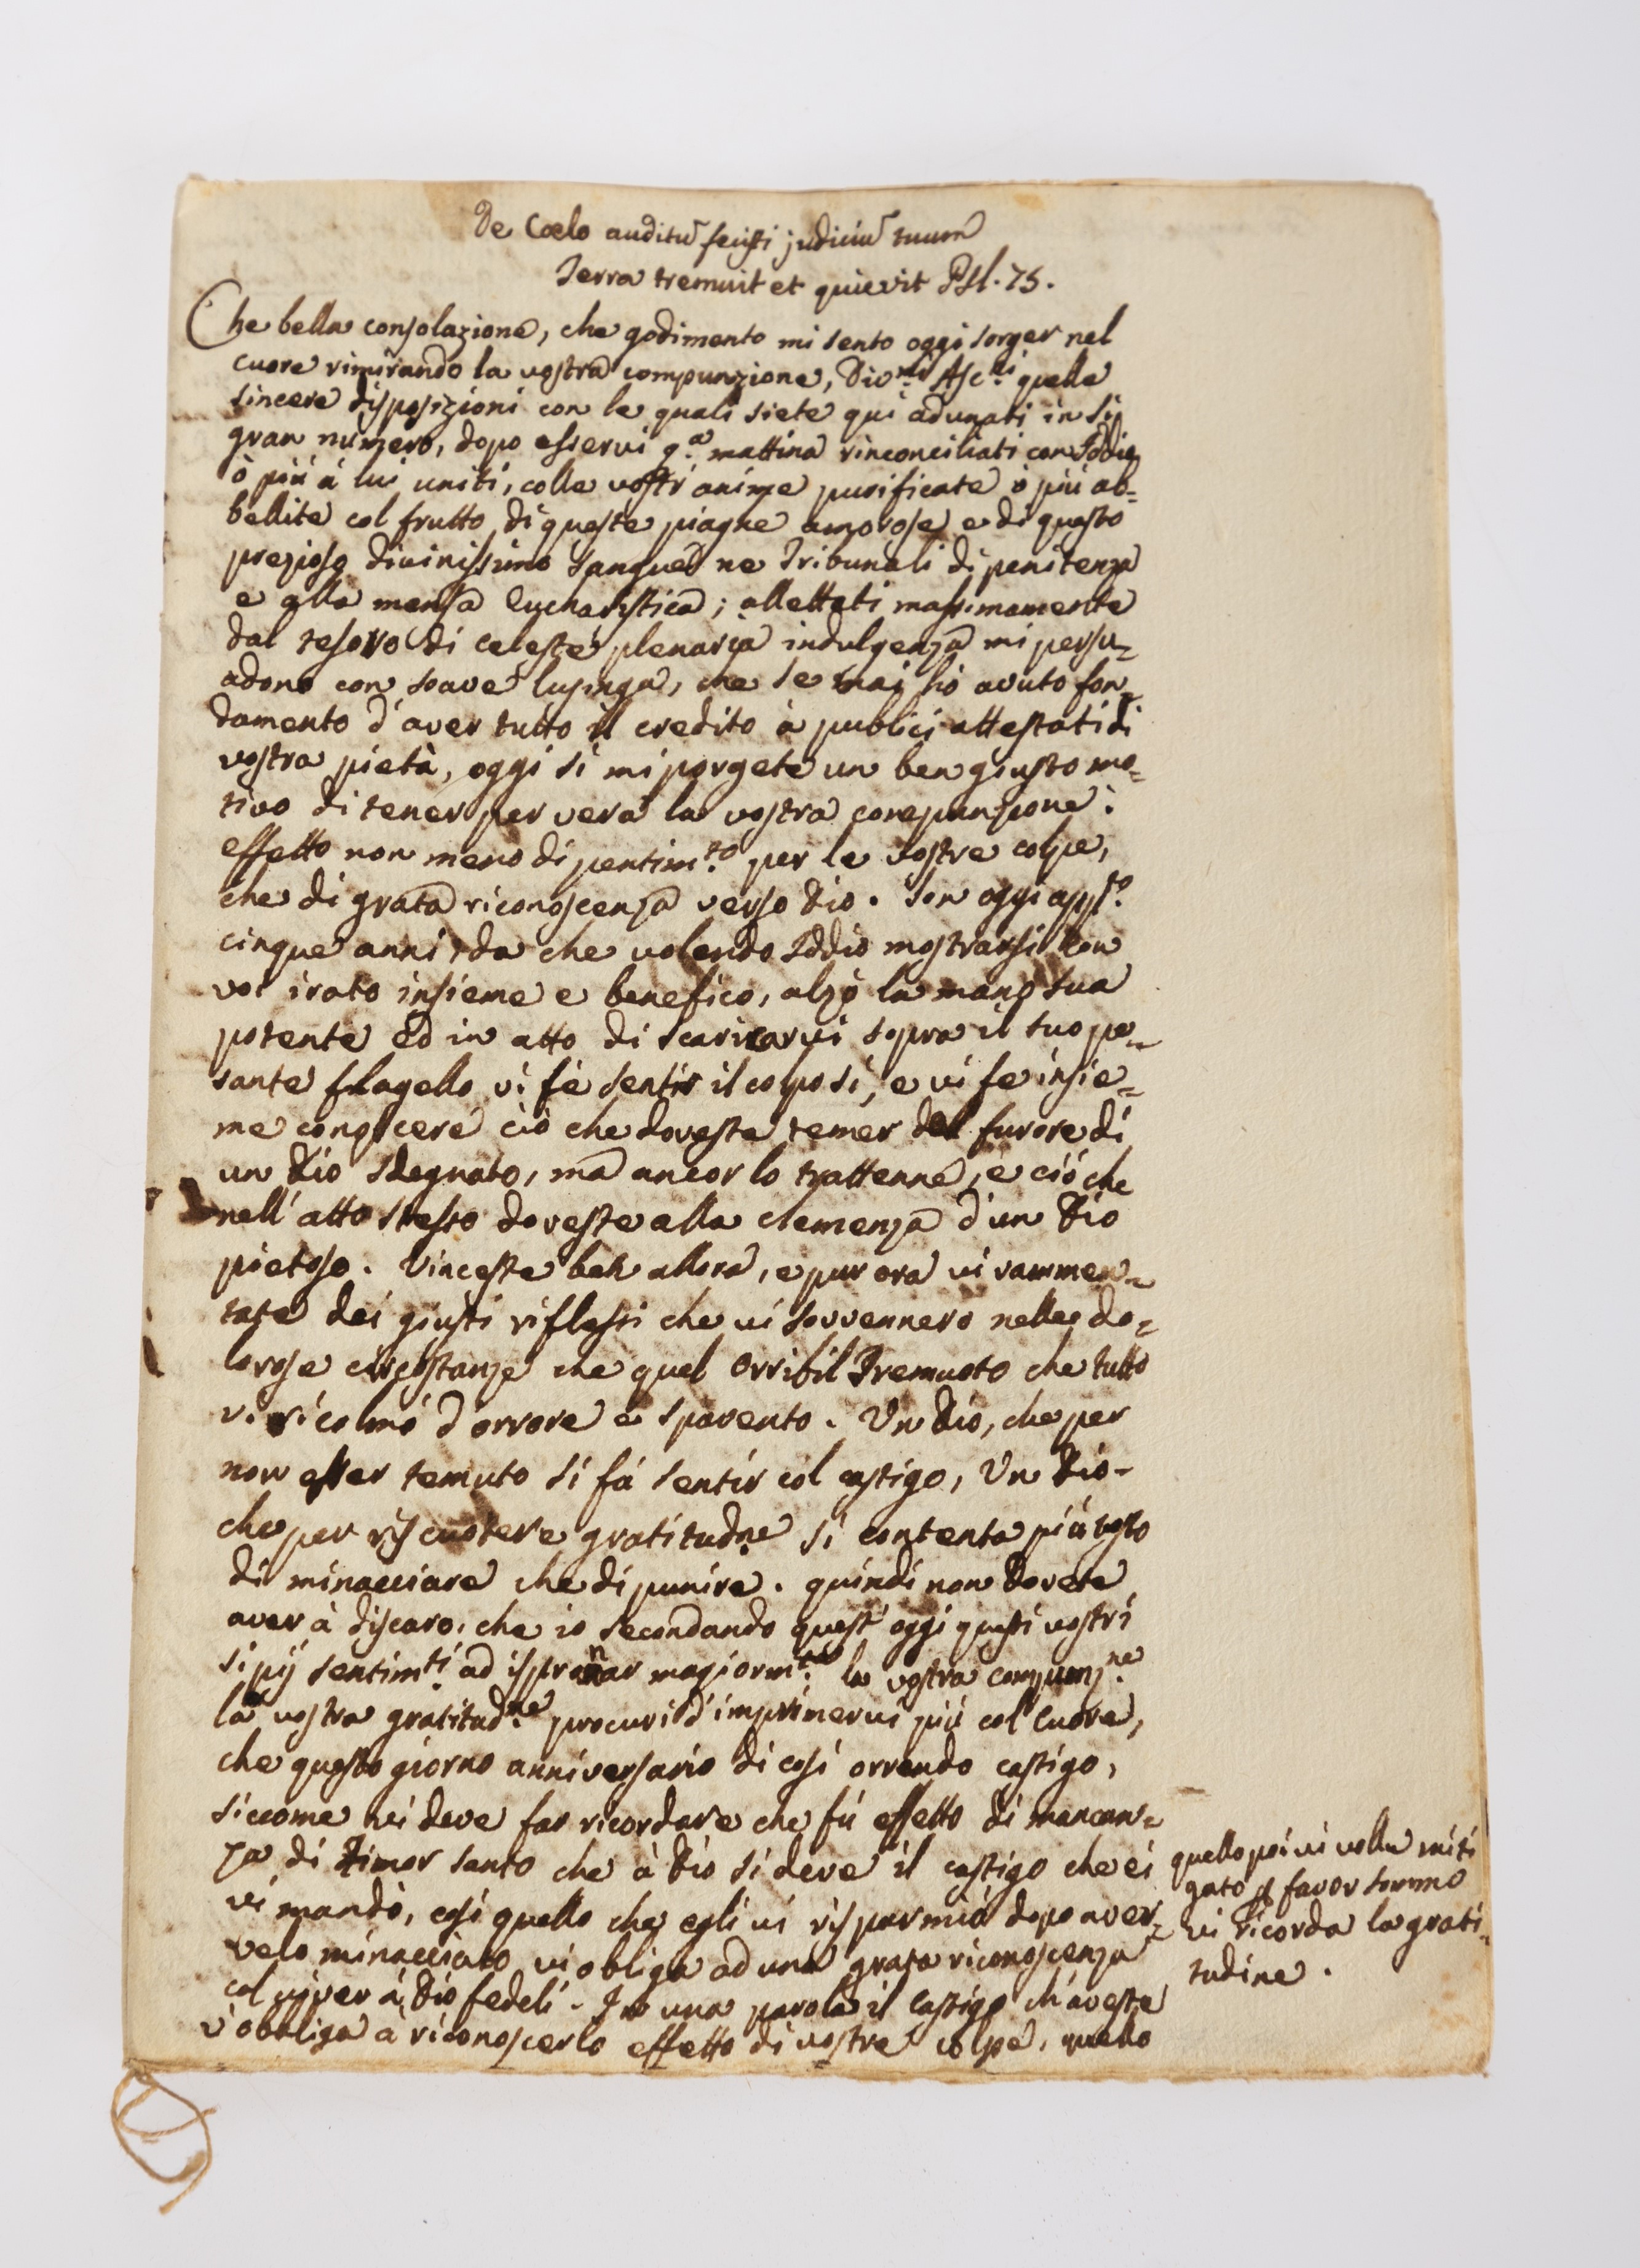 De Coelo auditũ fecisti judiciũ tuum
Terra tremuit et quievit Psl. 75.
Che bella consolazione, che godimento mi sento oggi sorger nel
cuore rimirando la vostra compunzione, Div.mi Asc.ti quelle
sincere disposizioni con le quali siete qui adunati in sì
gran numero, dopo esservi q.a mattina rinconciliati con Iddio
ò più à lui uniti, colle vostr'anime purificate ò più ab=
bellite col frutto di queste piaghe amorose e di questo
prezioso divinissimo sangue ne Tribunali di penitenza
e alla mensa Eucharistica; allettati massimamente
dal tesoro di celeste plenaria indulgenza mi persu=
adono con soave lusinga, che se mai hò avuto fon=
damento d'aver tutto il credito à publici attestati di
vostra pietà, oggi sì mi porgete un ben giusto mo=
tivo di tener per vera la vostra compunzione:
effetto non meno di pentim.to per le vostre colpe,
che di grata riconoscenza verso Dio. Son oggi app.to
cinque anni da che volendo Iddio mostrarsi con
voi irato insieme e benefico, alzò la mano sua
potente ed in atto di scaricarvi sopra il suo pe=
sante flagello vi fè sentir il colpo sì, e vi fe insie=
me conoscere ciò che doveste temer del furore di
un Dio sdegnato, ma ancor lo trattenne, e ciò che
nell'atto stesso doveste alla clemenza d'un Dio
pietoso. Vinceste beh allora, e pur ora vi rammen=
tate dei giusti riflessi che vi sovvennero nelle do=
lorose circostanze che quel orribil Tremuoto che tutto
vi ricolmò d'orrore e spavento. Un Dio, che per
non esser temuto si fà sentir col castigo, Un Dio
che per riscuotere gratitud.ne si contenta più tosto
di minacciare che di punire. quindi non dovete
aver à discaro, che io secondando quest'oggi questi vostri
sì pij sentim.ti ad ispronar magiorm.te la vostra compunz.ne
la vostra gratitud.ne procuri d'imprimervi più col cuore,
che questo giorno anniversario di così orrendo castigo,
siccome vi deve far ricordare che fù effetto di mancan=
za di timor santo che à Dio si deve il castigo che ei
vi mandò, così quello che egli vi risparmiò dopo aver=
velo minacciato vi obliga ad una grata riconoscenza
col viver à Dio fedeli. In una parola il castigo ch'aveste
v'obbliga à riconoscerlo effetto di vostre colpe, quello
quello poi vi volle miti
gato p favor sommo
vi ricorda la grati=
tudine.